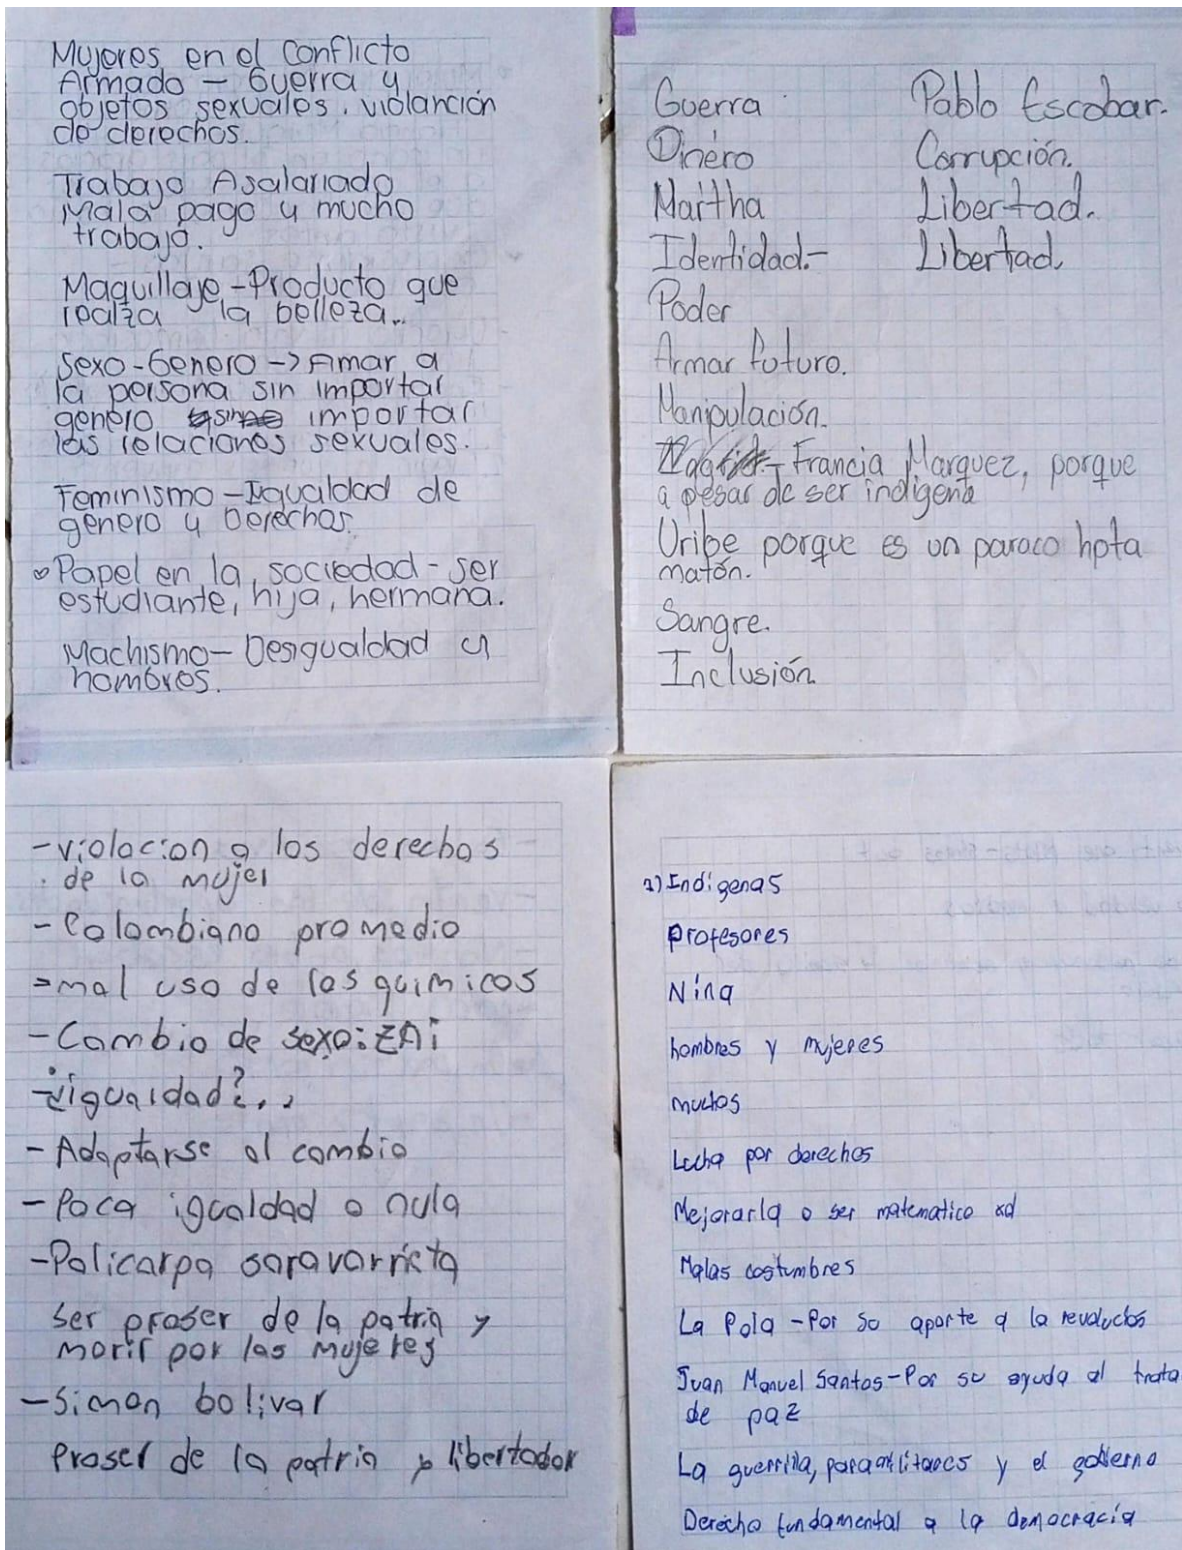 Mujeres en el Conflicto
Armado - Guerra y
objetos sexuales. violanción
de derechos.
Trabajo Asalariado
Mala pago y mucho
trabajo.
Maquillaje - Producto que
realza la belleza...
Sexo-Genero -> Amar a
la persona sin importar
genero importar
las relaciones sexuales.
Feminismo - Igualdad de
genero y Derechos.
Papel en la sociedad - ser
estudiante, hija, hermana.
Machismo - Desigualdad y
hombres.
Guerra
Dinero
Martha
Identidad.-
Poder
Armar futuro.
Manipulación.
Francia Marquez, porque
a pesar de ser indigena
Uribe porque es un paraco hpta
matón.
Sangre.
Inclusión
Pablo Escobar.
Corrupción.
Libertad.
Libertad.
- violacion a los derechos
de la mujer
- Colombiano promedio
- mal uso de los quimicos
- Cambio de sexo: ZAi
- ¿igualdad?..
- Adaptarse al cambio
- Poca igualdad o nula
- Policarpa saravarrieta
ser proser de la patria y
morir por las mujeres
- Simon bolivar
Proser de la patria y libertador
Indigenas
Profesores
Nina
hombres y mujeres
muchos
Lucha por derechos
Mejorarla o ser matematico xd
Malas costumbres
La Pola - Por so aporte a la
Juan Manuel Santos - Por su ayuda al trata
de paz
La guerrilla, paramilitares y el gobierno
Derecho fundamental a la democracia